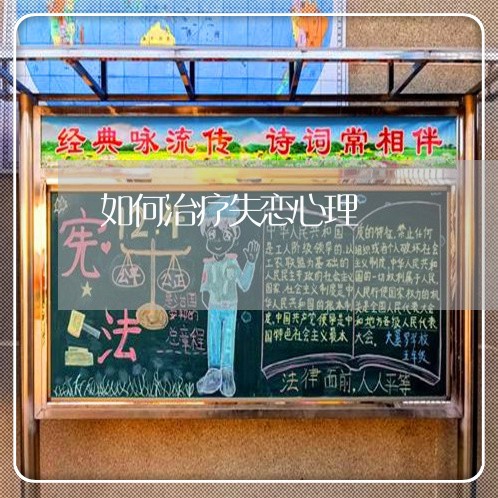 经典咏流传 诗词常相伴
如何治疗失恋心理
宪法
12.4
公平 公正
总章程
中华人民共和国
是工人阶级领导的,以
工农联盟为基础的
人民民主专政的社会主义
国家.社会主义制度是中
华人民共和国的根本制
度.中国共产党领导是中
国特色社会主义最本
质的特征.禁止任何
组织或者个人破坏社会
主义制度.中华人民共和
国的一切权利属于人民.
人民行使国家权力的机
关是全国人民代表大会
和地方各级人民代表
大会.
五年级
法律面前,人人平等